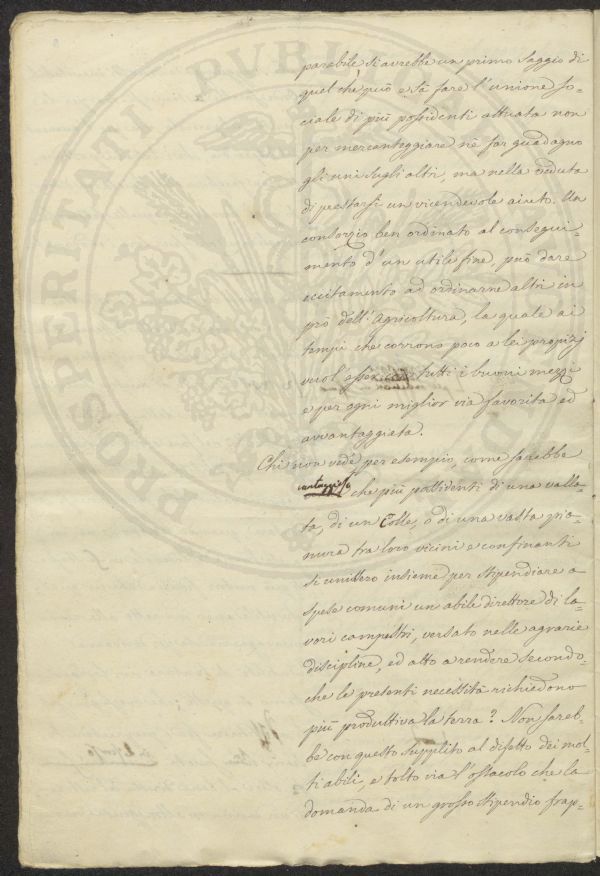 parabile si avrebbe un primo saggio di
quel che può e sà fare l'unione so-
ciale di più possidenti attuata non
per mercanteggiare nè far guadagno
gli uni sugli altri, ma nella veduta
di prestarsi un vicendevole aiuto. Un
consorzio ben ordinato al consegui-
mento d'un utile fine, può dare
eccitamento ad ordinarne altri in
prò dell'Agricoltura, la quale ai
tempi che corrono poco a lei propizj
vuol esser con tutti i buoni mezzi
e per ogni miglior via favorita ed
avvantaggiata.
Chi non vede per esempio, come sarebbe
vantaggioso che più possidenti di una valla-
ta, di un Colle, o di una vasta pia-
nura tra loro vicini e confinanti
si unissero insieme per stipendiare a
spese comuni un abile direttore di la-
vori campestri, versato nelle agrarie
discipline, ed atto a rendere secondo-
che le presenti necessità richiedono
più produttiva la terra? Non sareb-
be con questo supplito al difetto dei mol-
ti abili, e tolto via l'ostacolo che la
domanda di un grosso stipendio frap-
PROSPERITATI PVBLICAE